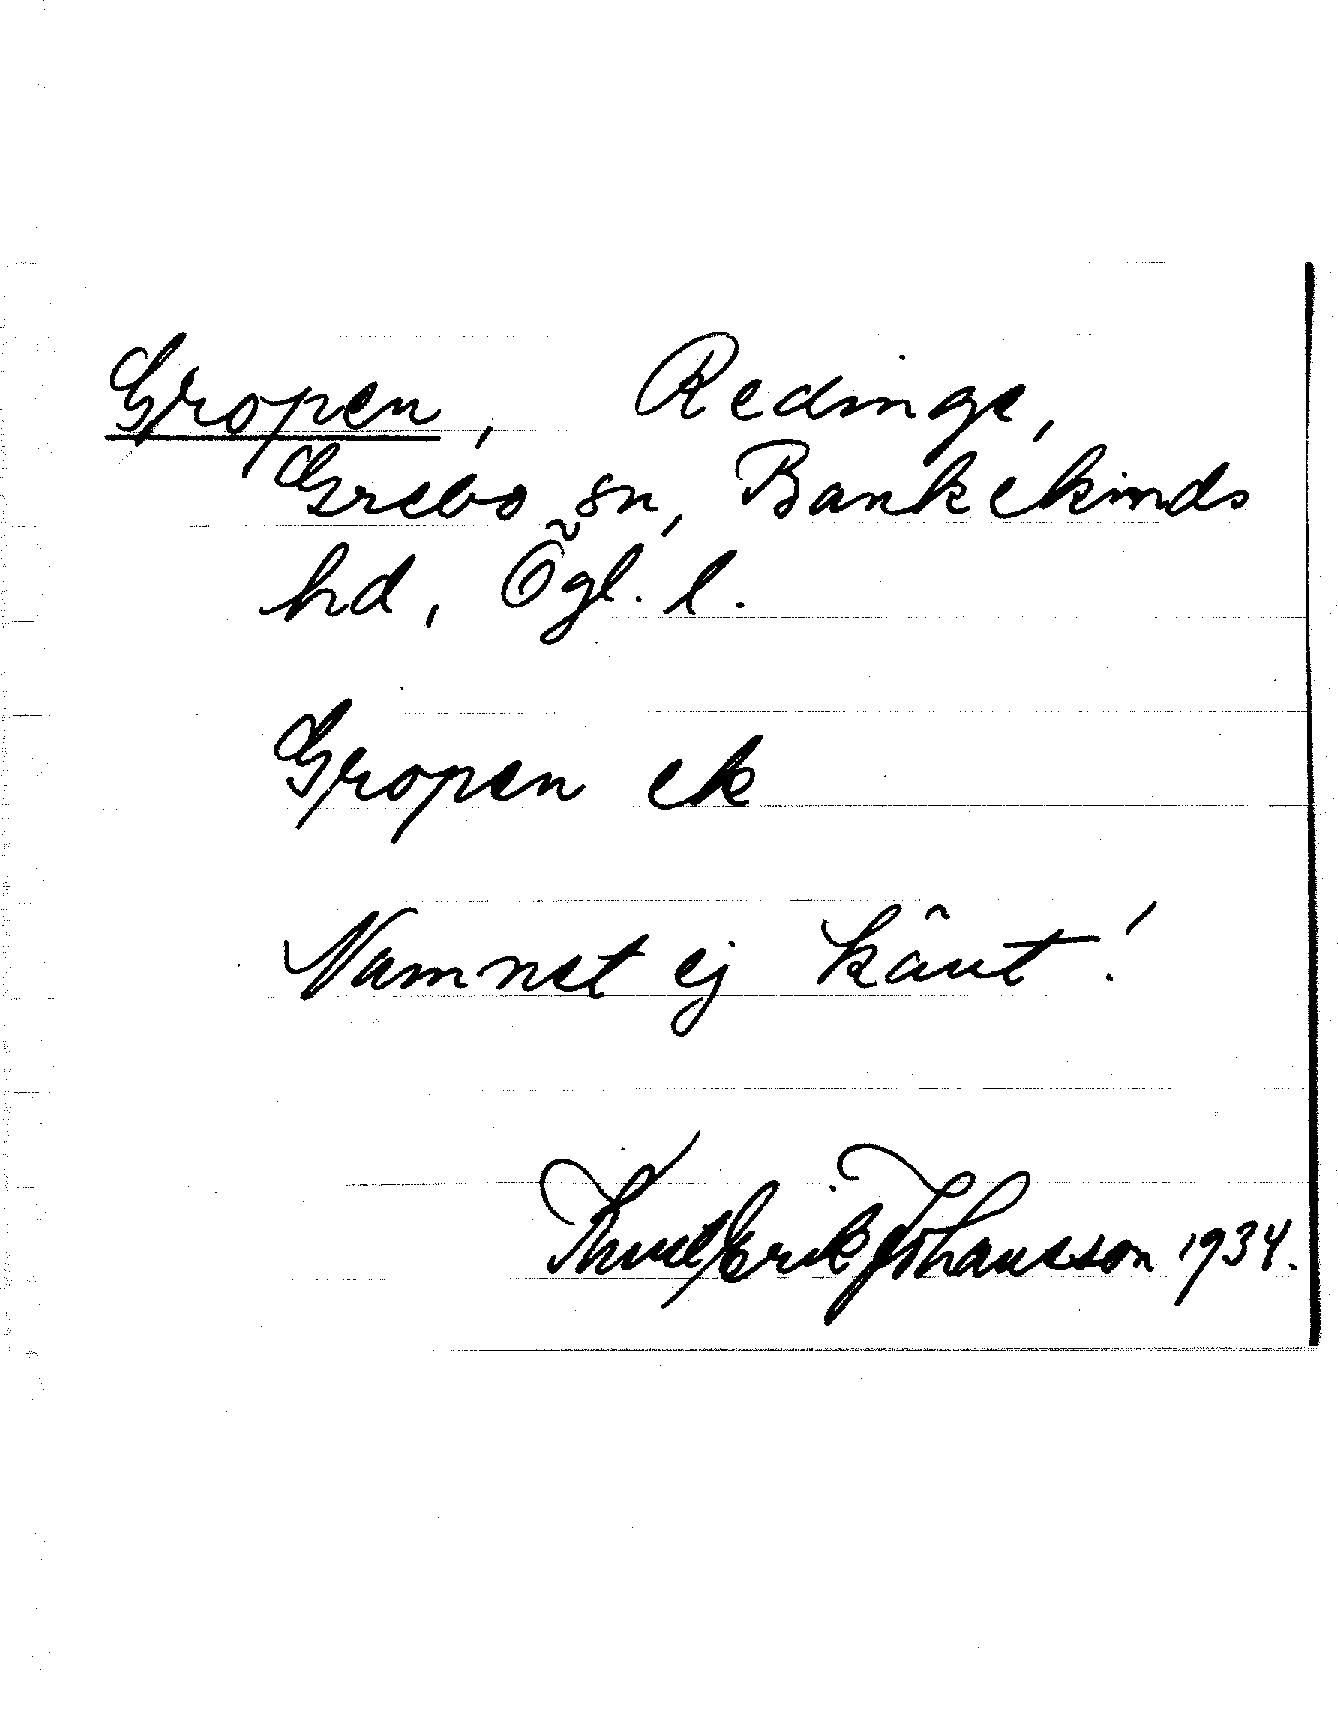 Gropen, Redinge,
Grebo sn, Bankekinds
hd, Ögl. l.
Gropen ek
Namnet ej känt!
Erik Johansson 1934.